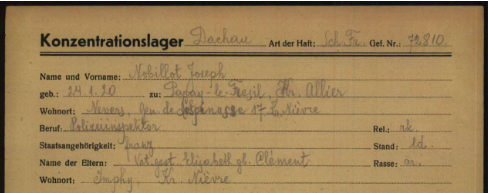 Konzentrationslager Dachau Art der Haft: Sch. Fr. Gef. Nr.: 72810
Name und Vorname: Nobillot Joseph
geb.: 24.1.20 zu: Kr. Allier
Wohnort: Nevers, 17 Nièvre
Beruf: Polizeiinspektor Rel.: rk.
Staatsangehörigkeit: franz Stand: ld.
Name der Eltern: Vat. gest. Elisabeth gb. Clement Rasse: ar.
Wohnort: Imphy Kr. Nièvre